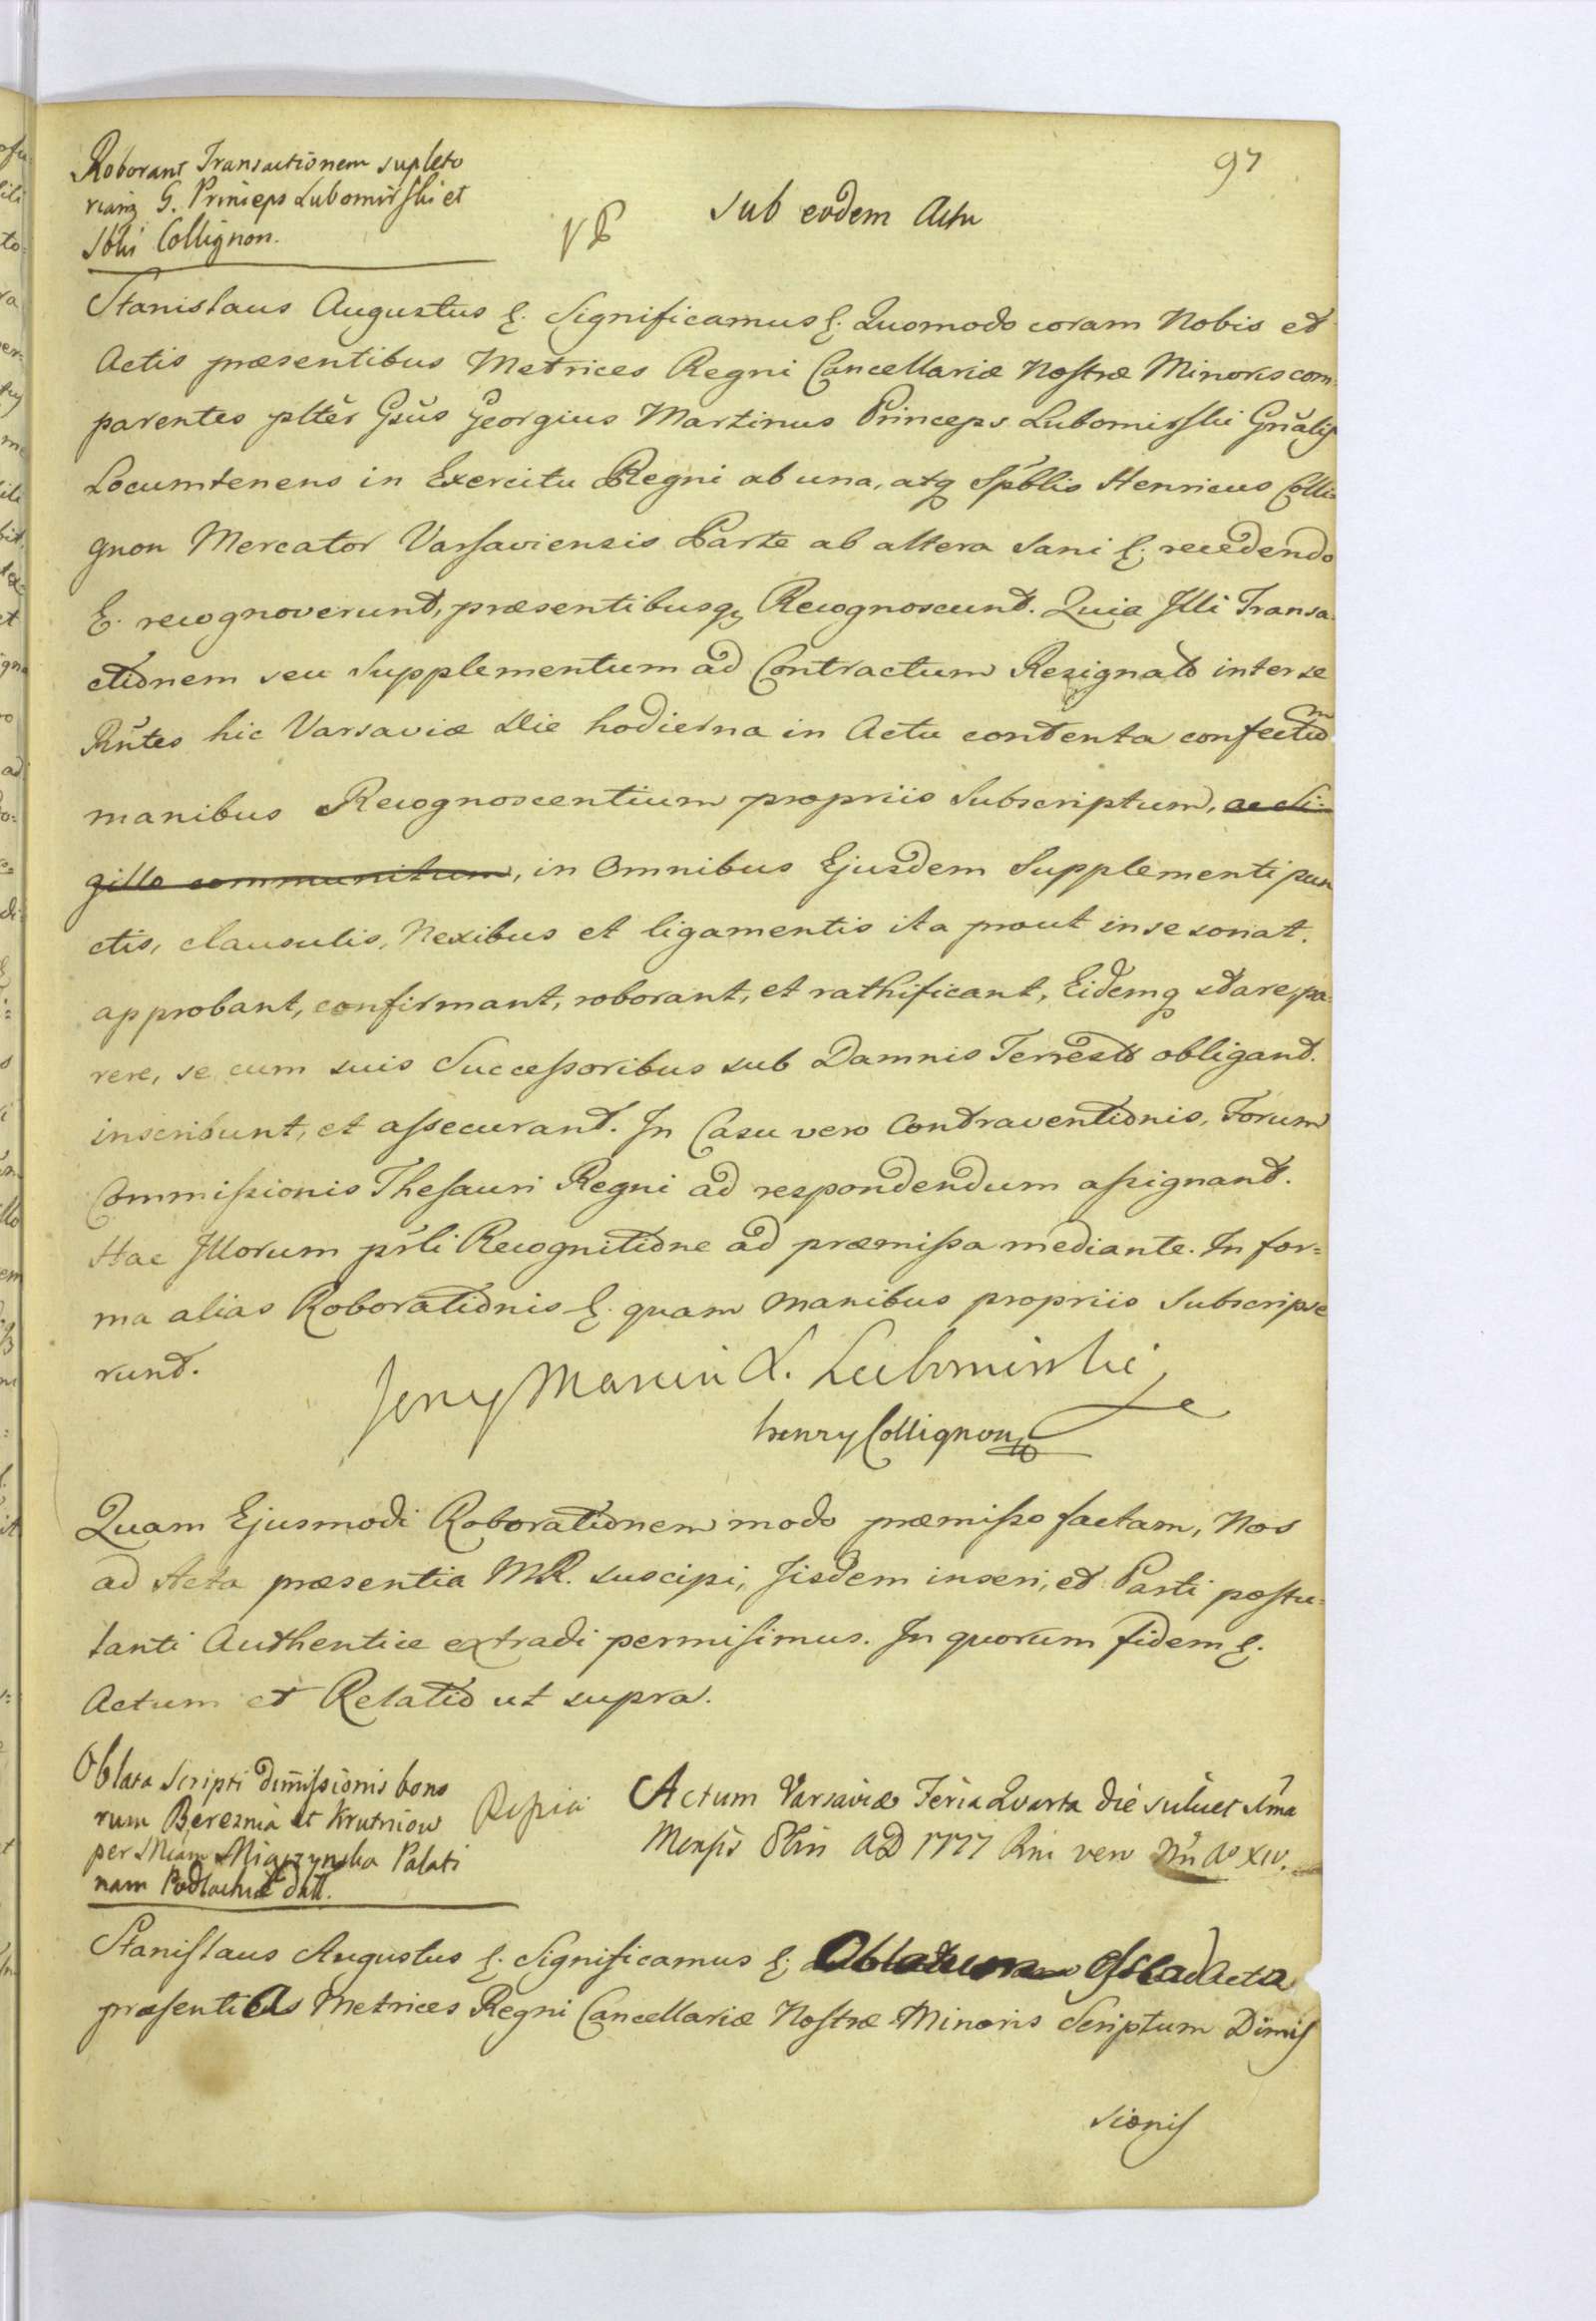 97
Roborant Transactionem supleto
riam G. Princeps Lubomirski et
Sptlis Collignon.
sub eodem Actu
Stanislaus Augustus &. Significamus &. Quomodo coram Nobis et
Actis præsentibus Metrices Regni Cancellariæ Nostræ Minoris com=
parentes plter Gsus Georgius Martinus Princeps Lubomirski Gnãlis
Locumtenens in Exercitu Regni ab una, atq Spblis Henricus Colli
gnon Mercator Varsaviensis Parte ab altera Sani &. recedendo
&. recognoverunt, præsentibusq Recognoscunt. Quia Illi Transa=
ctionem seu Supplementum ad Contractum Resignato inter se
Rñtes hic Varsaviæ Die hodierna in Actu contenta confectum
manibus Recognoscentium propriis Subscriptum, ac Si=
gillo communitum, in Omnibus Ejusdem Supplementi pun
ctis, clausulis, Nexibus et ligamentis ita prout in se sonat.
approbant, confirmant, roborant, et rathificant, Eidemq stare, pa=
rere, se cum suis Successoribus sub Damnis Terrestb obligant.
inscribunt, et assecurant. In Casu vero Contraventionis, Forum
Commissionis Thesauri Regni ad respondendum assignant.
Hac Illorum pñli Recognitione ad præmissa mediante. In for=
ma alias Roborationis &. quam Manibus propriis Subscripse
runt.
Jerzy Marcin X. Lubomirski
henry Collignon
Quam Ejusmodi Roborationem modo præmisso factam, Nos
ad Acta præsentia MR. suscipi, Iisdem inseri, et Parti postu=
lanti Authentice extradi permisimus. In quorum fidem &.
Actum et Relatio ut supra.
Oblata Scripti dimissionis bono
rum Bereznia et Krutniow
per Miączynska Palati
nam Podlachiæ datt.
Actum Varsaviæ Feria Quarta die scilicet 
Mensis 8bris AD 1777 Rni vero Nri Ao XIV.
Stanislaus Augustus &. Significamus &. Oblatum esse ad Acta
præsentia Metrices Regni Cancellariæ Nostræ Minoris Scriptum Dimis
sionis